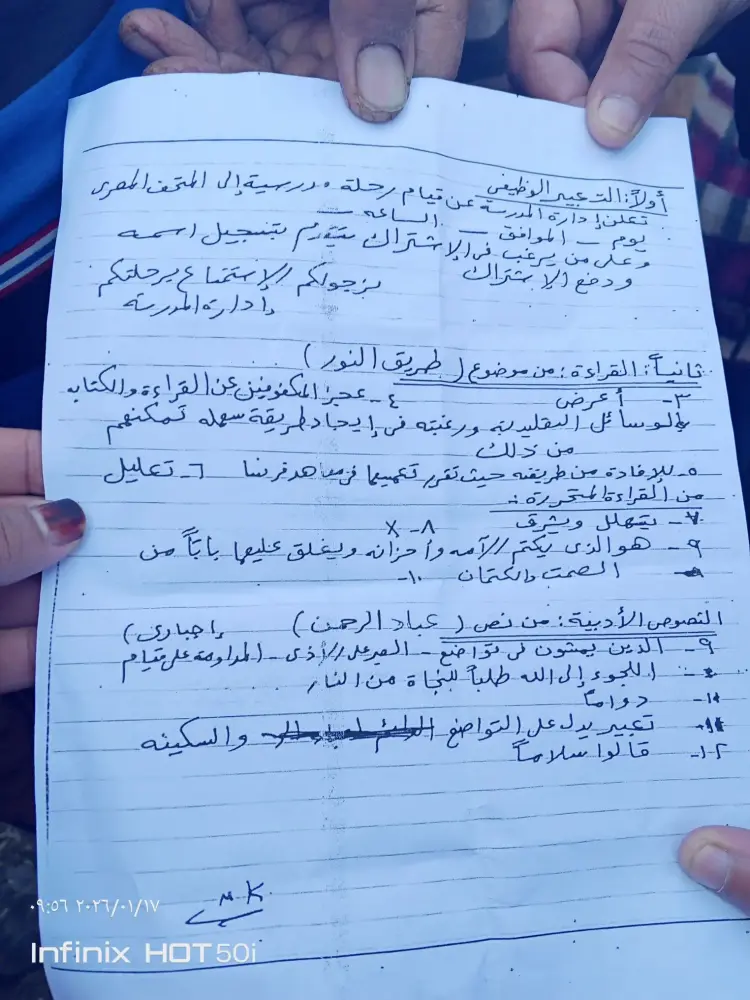 أولاً: التعبير الوظيفى
تعلن إدارة المدرسة عن قيام رحلة مدرسية إلى المتحف المصرى
يوم – الموافق – الساعه –
وعلى من يرغب فى الإشتراك يتقدم بتسجيل اسمه
ودفع الاشتراك
نرجولكم الإستمتاع برحلتكم
إدارة المدرسه
ثانياً: القراءة: من موضوع (طريق النور)
٣- أعرض ٤- عجز المكفوفين عن القراءة والكتابه
بالوسائل التقليديه ورغبته فى إيجاد طريقة سهله تمكنهم
من ذلك
٥- للإفادة من طريقته حيث تقرر تعميمها فى معاهد فرنسا ٦- تعليل
من القراءة المتحررة:
٧- يتهلل ويشرق ٨- X
٩- هو الذى يكتم آلامه وأحزانه ويغلق عليها باباً من
الصمت والكتمان ١٠-
النصوص الأدبية: من نص (عباد الرحمن) (إجبارى)
٩- الذين يمشون فى تواضع – الصبر على الأذى – المداومة على قيام
اللجوء إلى الله طلباً للنجاة من النار
١١- دواماً
١١- تعبير يدل على التواضع والسكينه
١٢- قالوا سلاماً
M K
٠٩:٥٦ ٢٠٢٦/٠١/١٧
Infinix HOT 50i